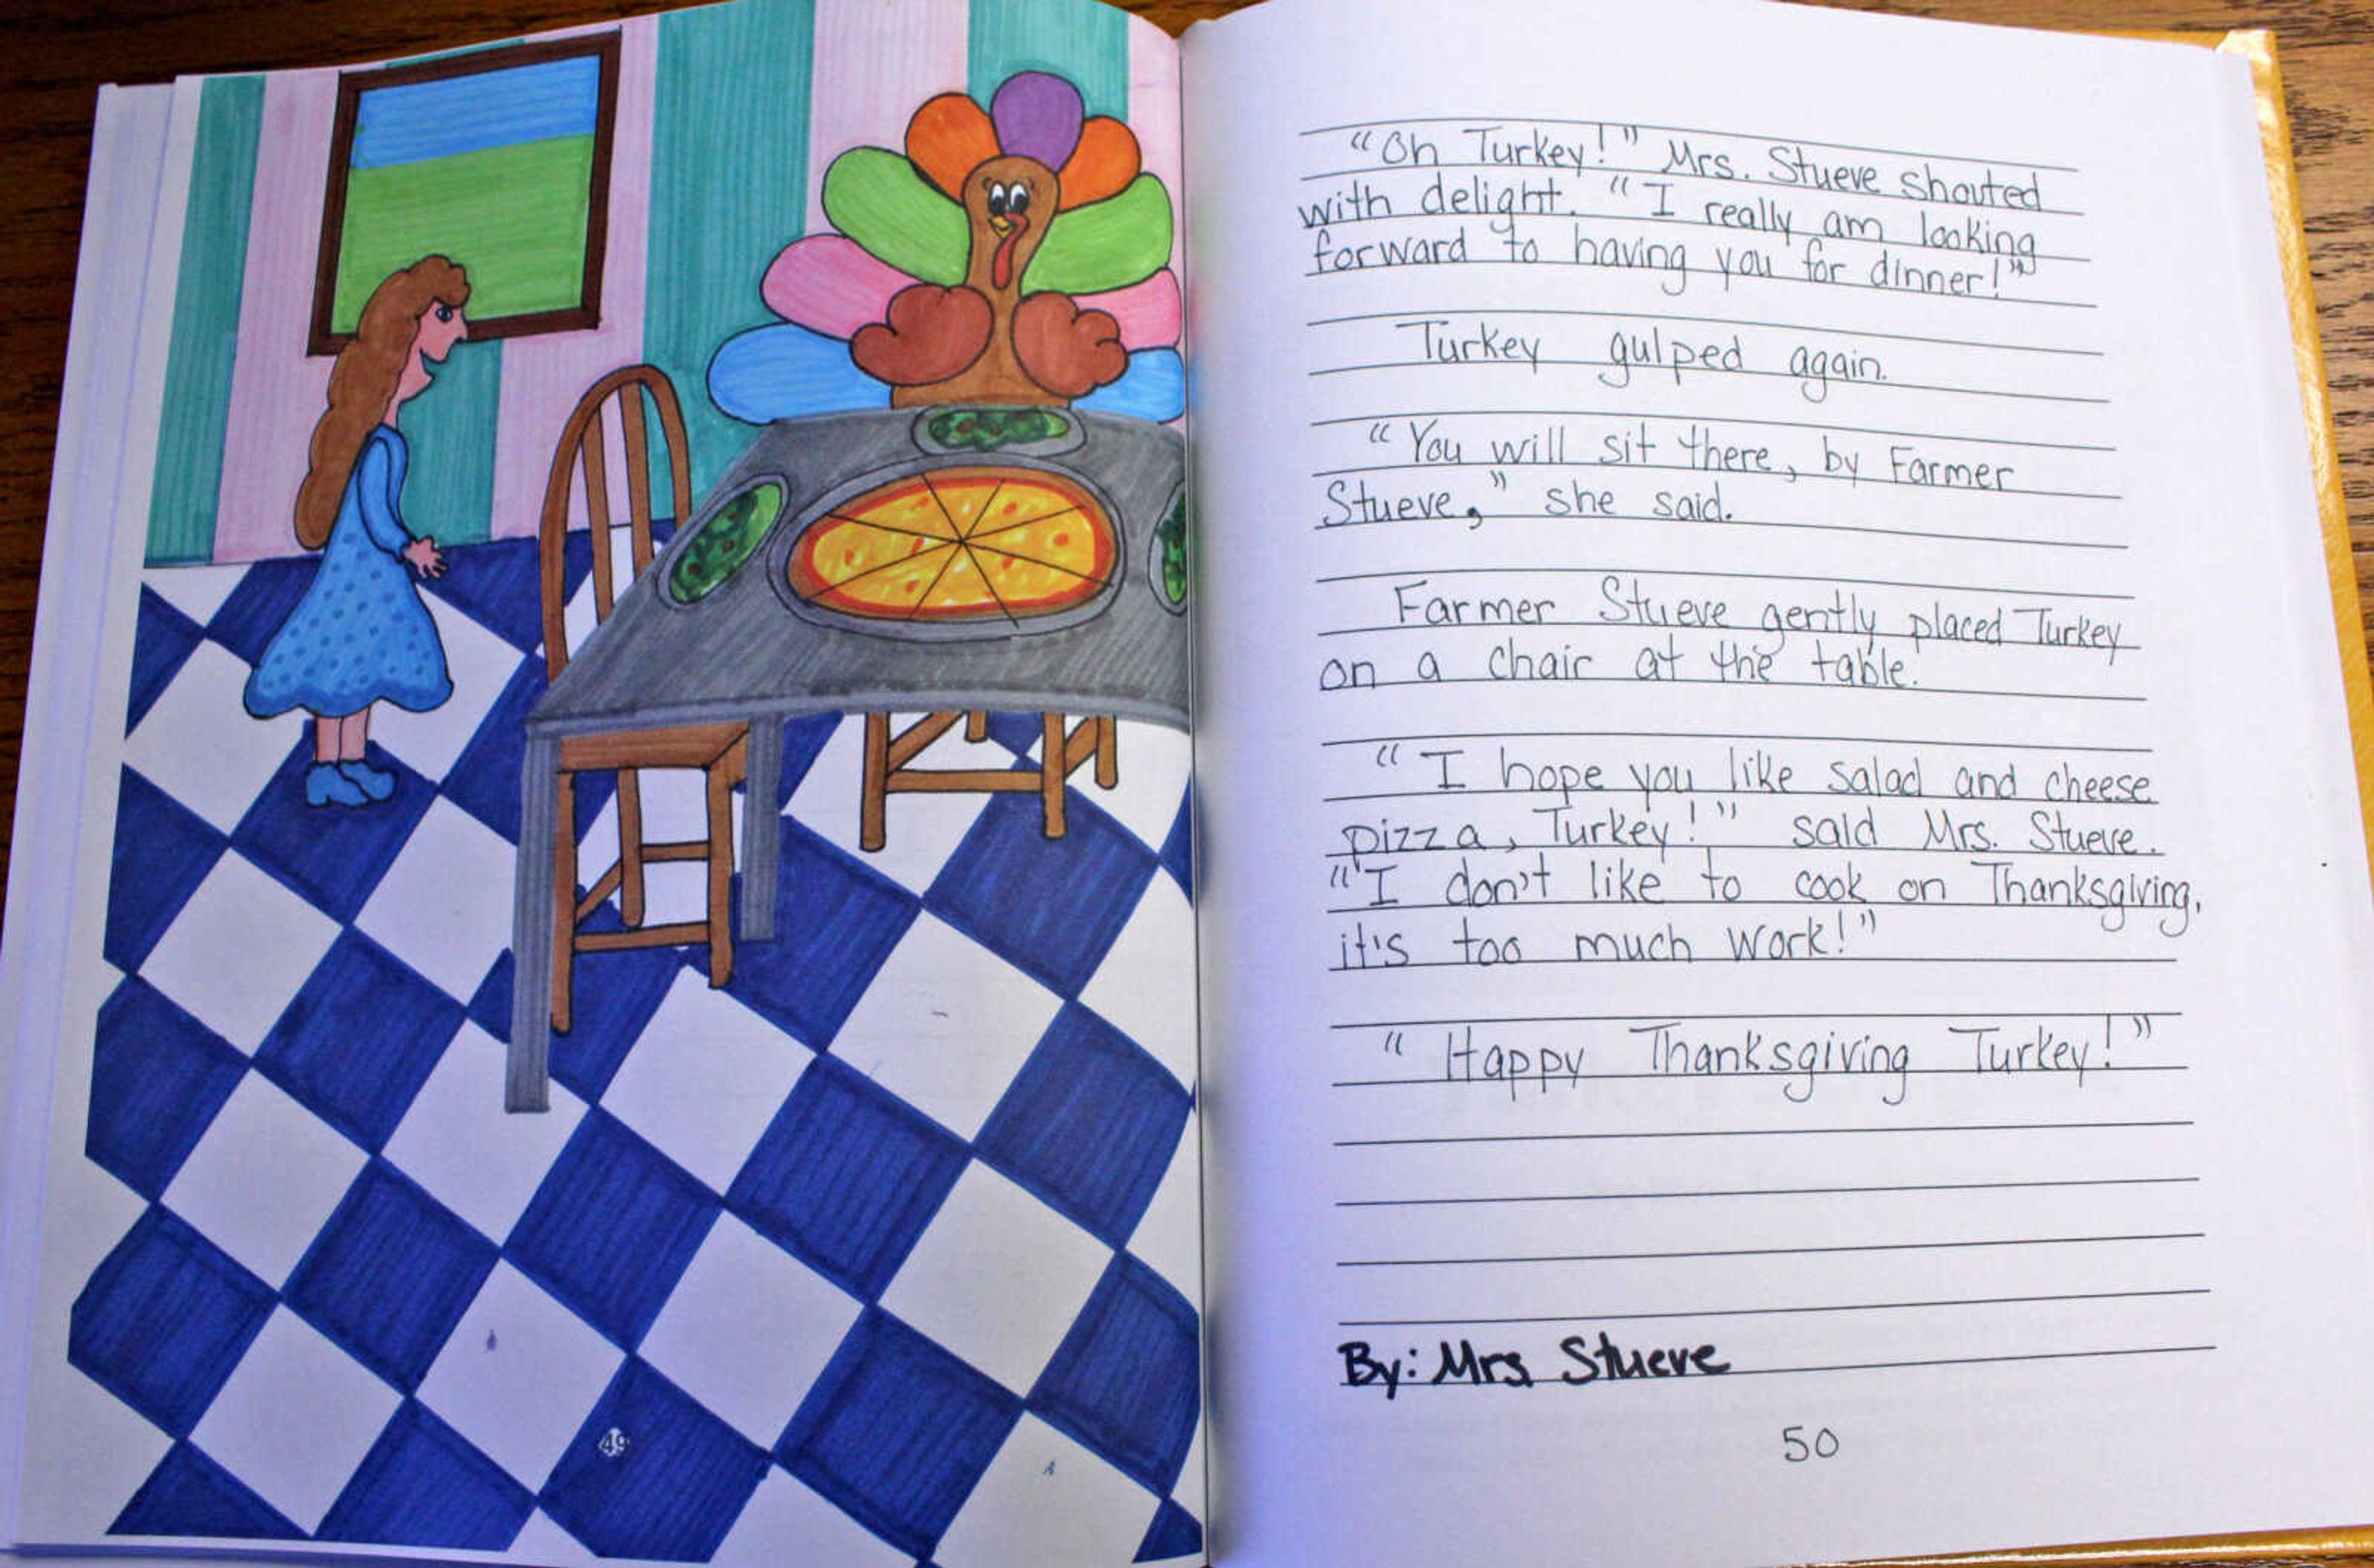 49
"Oh Turkey!" Mrs. Stueve shouted
with delight. "I really am looking
forward to having you for dinner!"
Turkey gulped again.
"You will sit there, by Farmer
Stueve," she said.
Farmer Stueve gently placed Turkey
on a chair at the table.
"I hope you like salad and cheese
pizza, Turkey!" said Mrs. Stueve.
"I don't like to cook on Thanksgiving,
it's too much work!"
"Happy Thanksgiving Turkey!"
By: Mrs. Stueve
50